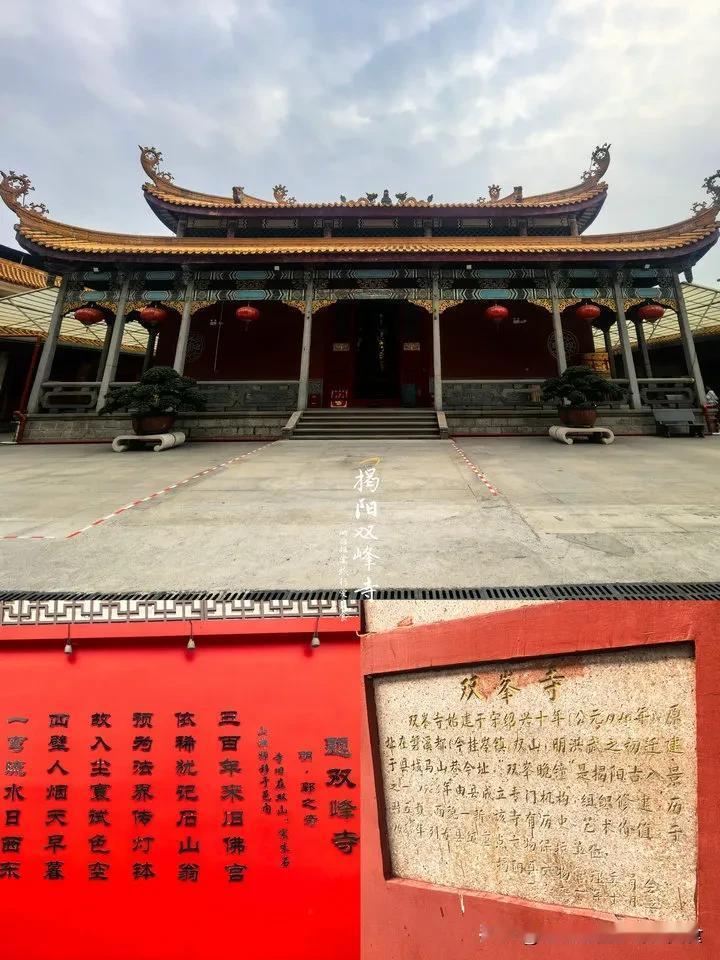 揭阳双峰寺
题双峰寺
明·郭之奇
寺旧在双山
三百年来旧佛宫
依稀犹记石山翁
预为法界传灯钵
故入尘寰斌色空
四壁人烟天早暮
一弯流水日西东
双峯寺
双峯寺始建于宋绍兴十年(公元1140年)原
址在磐溪都(今桂岭镇双山)明洪武之初迁建
于县城马山巷今址。"双峯晚钟"是揭阳古八景
之一 年由县成立专门机构,组织修建,历
面貌一新。该寺有历史、艺术价值,于
年列为县级重点文物保护单位。